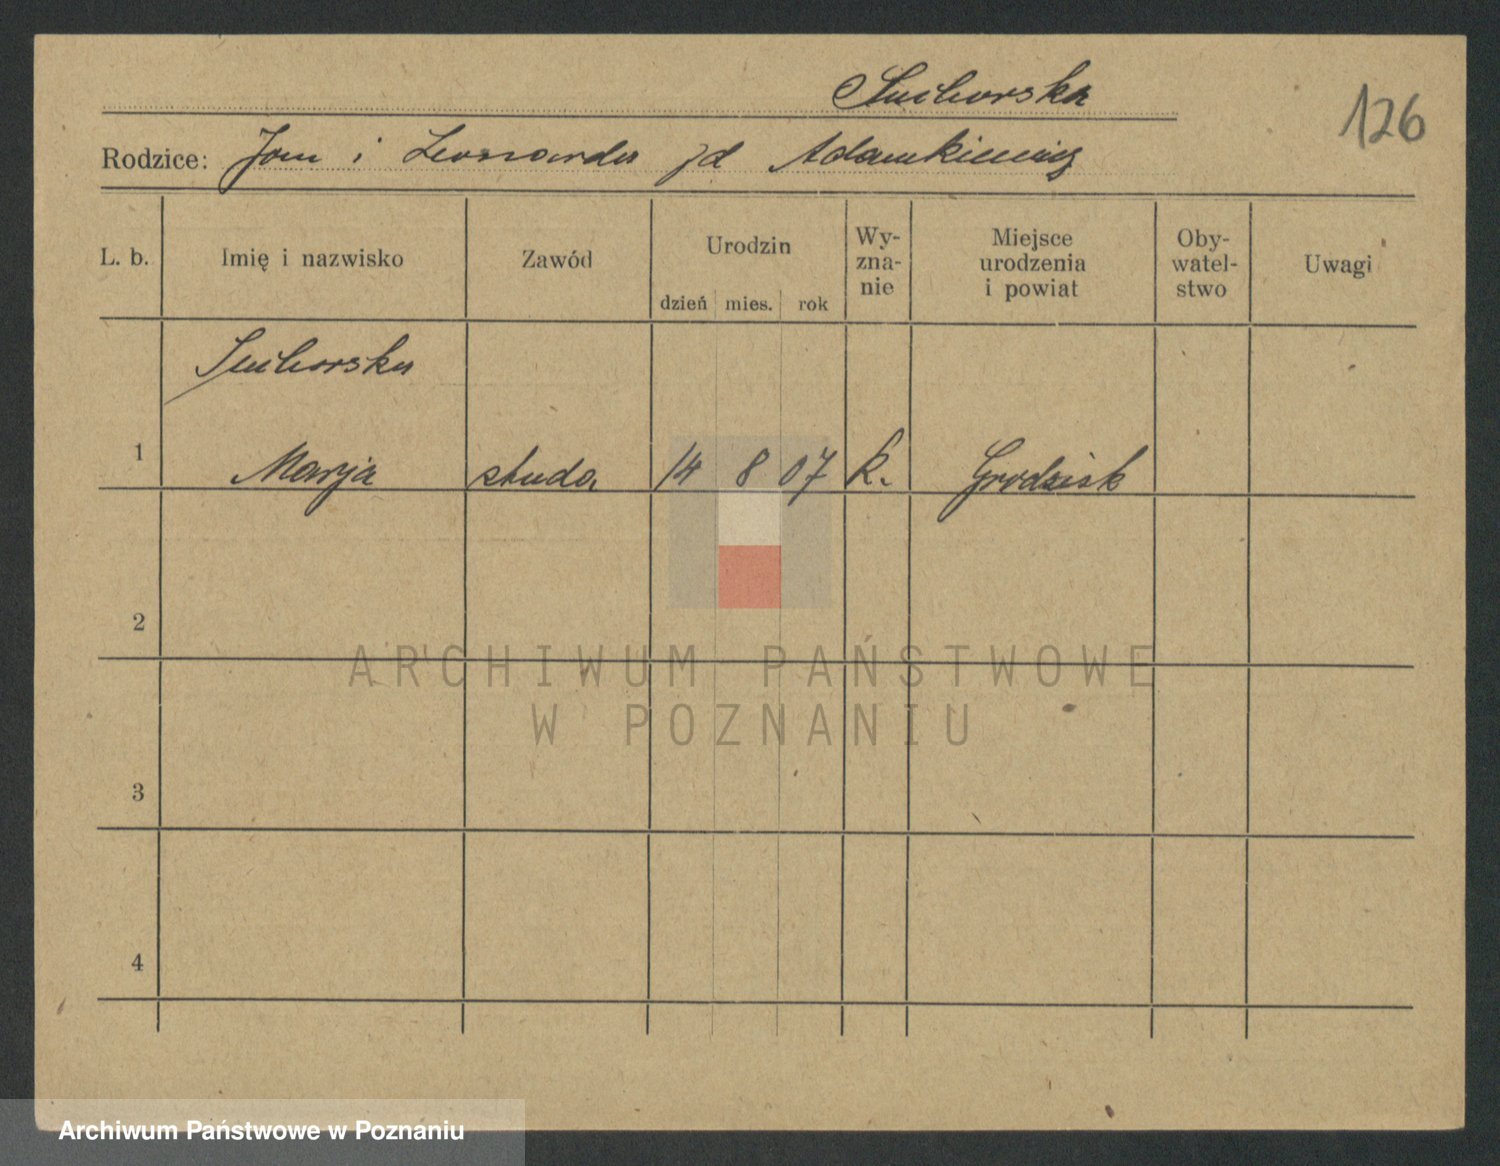 Suchorska
126
Rodzice: Jan i Leonarda zd Adamkiewicz
L. b. Imię i nazwisko Zawód Urodzin dzień mies. rok Wy-zna-nie Miejsce urodzenia i powiat Oby-watel-stwo Uwagi
Suchorska
1 Marja studa 14 8 07 k. Grodzisk
2
ARCHIWUM PAŃSTWOWE
W POZNANIU
3
4
Archiwum Państwowe w Poznaniu